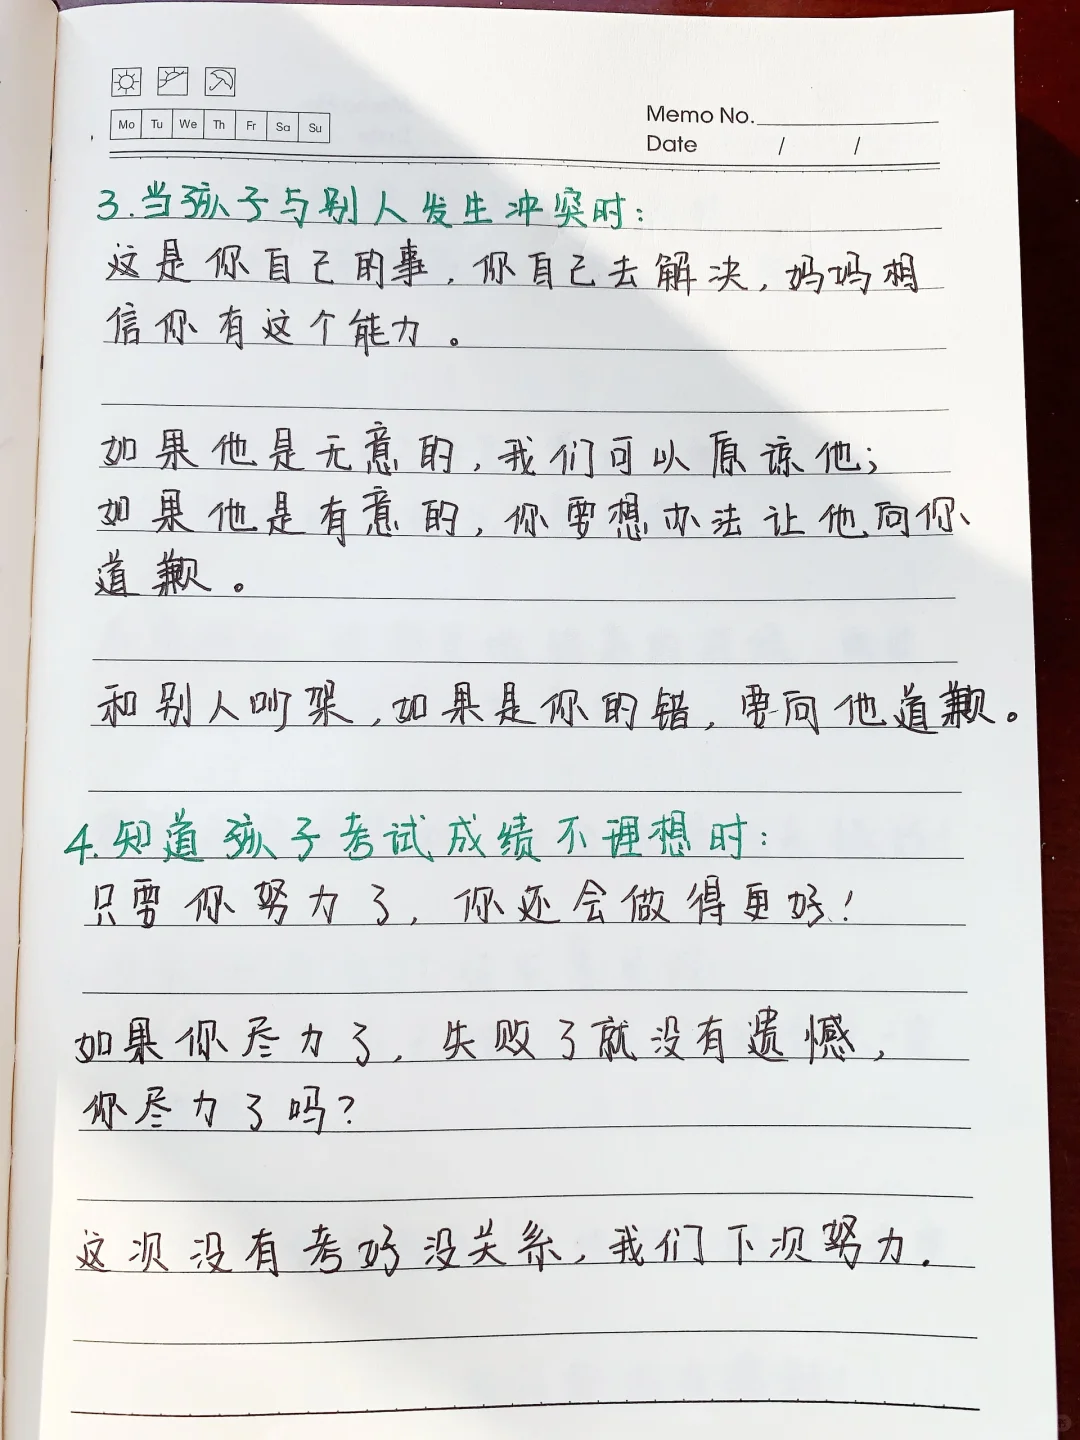 Mo Tu We Th Fr Sa Su
Memo No.
Date / /
3.当孩子与别人发生冲突时：
这是你自己的事，你自己去解决，妈妈相
信你有这个能力。
如果他是无意的，我们可以原谅他；
如果他是有意的，你要想办法让他向你
道歉。
和别人吵架，如果是你的错，要向他道歉。
4.知道孩子考试成绩不理想时：
只要你努力了，你还会做得更好！
如果你尽力了，失败了就没有遗憾，
你尽力了吗？
这次没有考好没关系，我们下次努力.